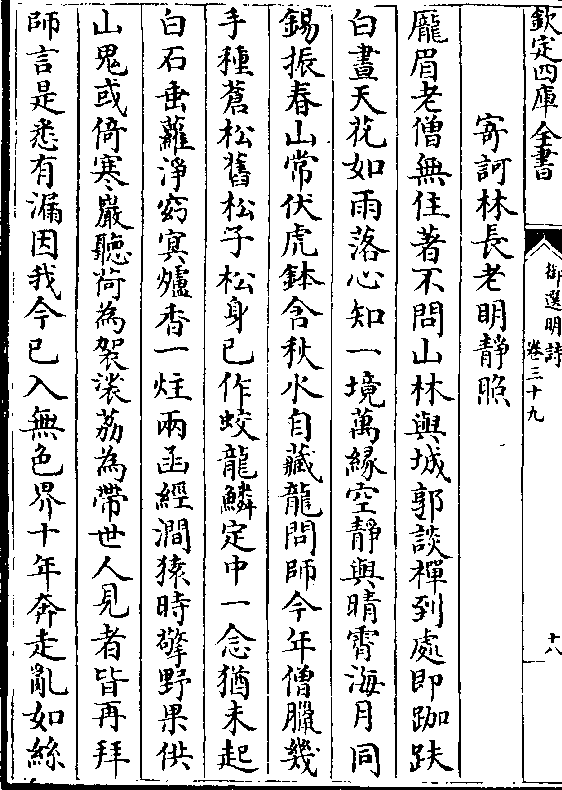 欽定四庫全書
御選明詩
卷三十九
十八
寄訶林長老明靜照
龎眉老僧無住著不問山林與城郭談禪到處即跏趺
白晝天花如雨落心知一境萬緣空靜與晴霄海月同
錫振春山常伏虎鉢含秋水自藏龍問師今年僧臘幾
手種蒼松舊松子松身已作蛟龍鱗定中一念猶未起
白石垂蘿淨窈冥爐香一炷兩函經澗猿時擎野果供
山鬼或倚寒巖聽荷為袈裟荔為帶世人見者皆再拜
師言是悉有漏因我今已入無色界十年奔走亂如絲